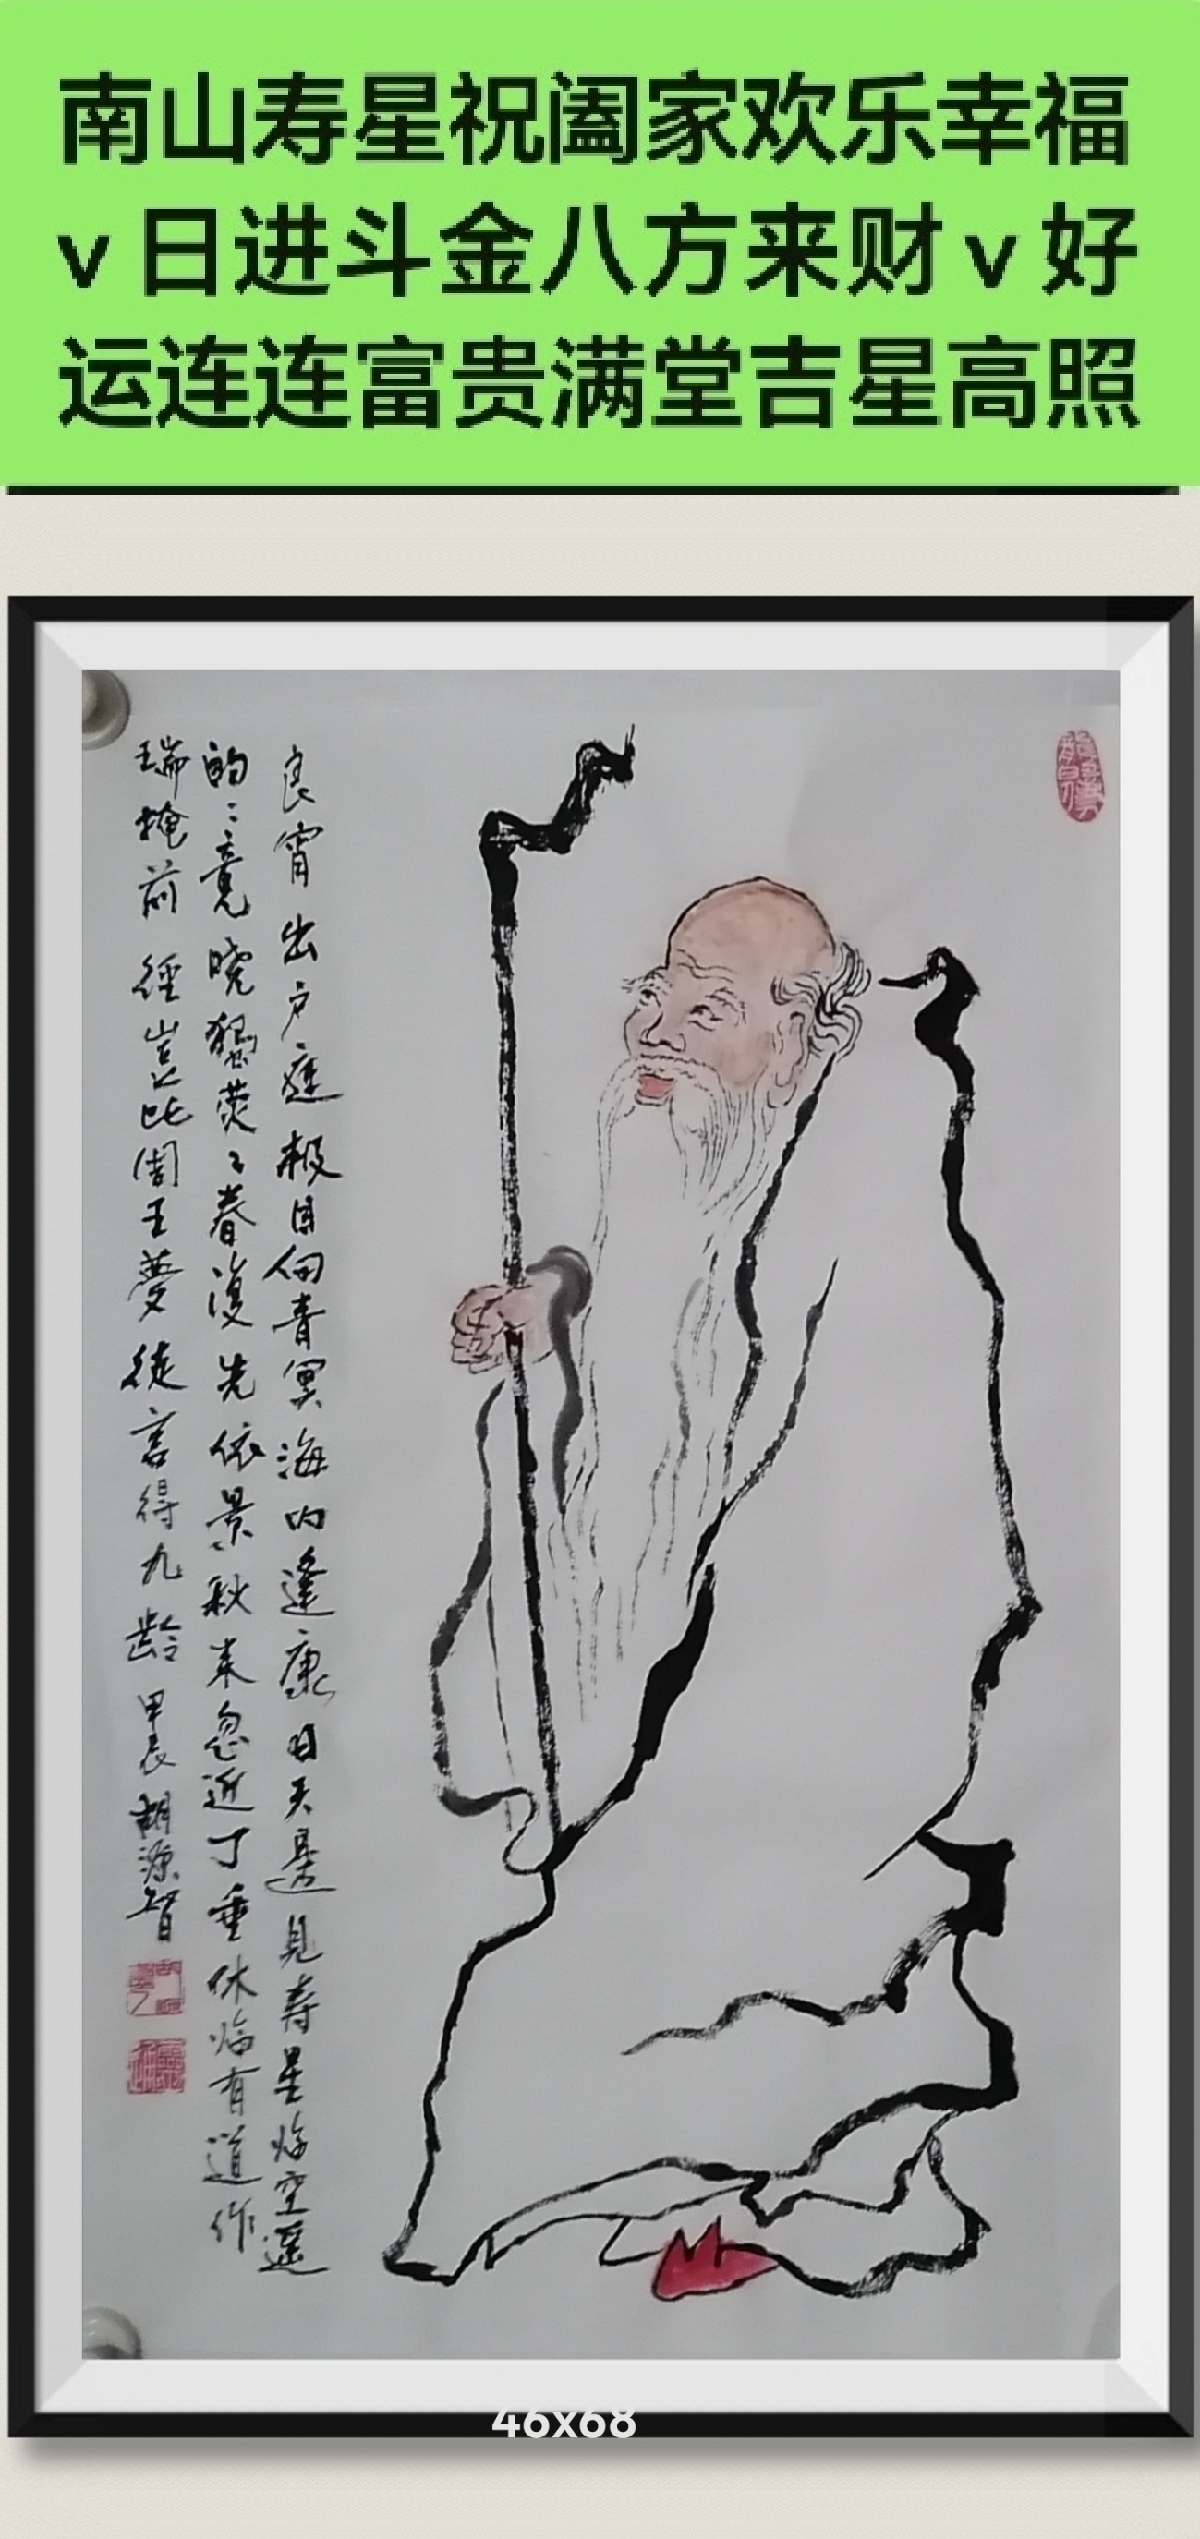 南山寿星祝阖家欢乐幸福
v日进斗金八方来财v好
运连连富贵满堂吉星高照
良宵出户庭极目向青冥海内逢康日天邊見寿星临空遥
的〻竟晓獨荧〻春後先依景秋来忽近丁垂休临有道作
瑞掩前徑豈比周王夢徒言得九龄 甲辰 胡源智
46x68